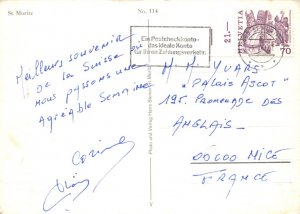 St. Moritz
No. 114
Ein Postcheckkonto -
das ideale Konto
für Ihren Zahlungsverkehr.
21.-
HELVETIA
70
Meilleurs souvenirs
de la Suisse où
nous passons une
agréable semaine
Corinne
M. M. YVARS
"PALAIS ASCOT"
195, PROMENADE DES
ANGLAIS -
06000 NICE
FRANCE